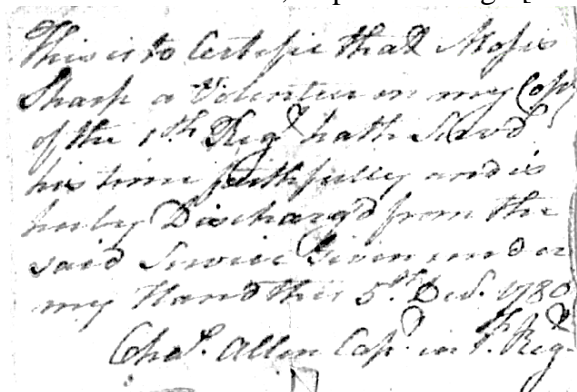 This is to Certifie that Moses
Sharp a Volunteer in my Copy
of the 1th Regt hath Servd
his time faithfully and is
herby Dischargd from the
said Service Given under
my Hand this 5th Decr. 1780
Chas. Allen Capt. in 1th Regt